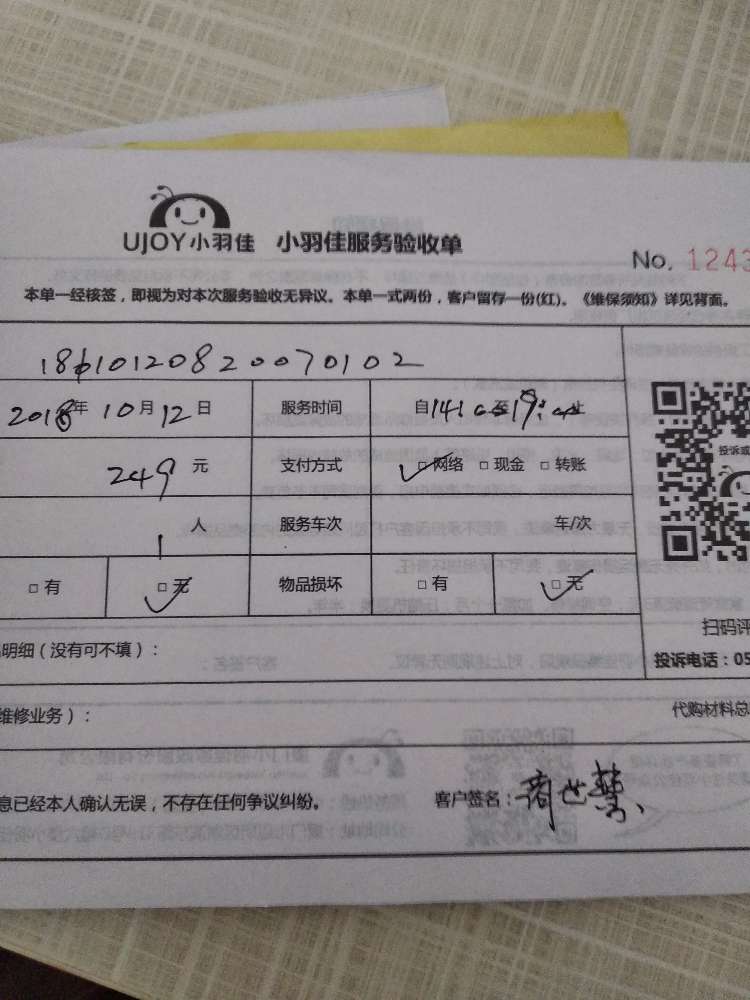 UJOY小羽佳 小羽佳服务验收单
No. 1243
本单一经核签，即视为对本次服务验收无异议。本单一式两份，客户留存一份(红)。《维保须知》详见背面。
181010120820070102
2018年 10月12日 服务时间 自14:00至19:00止
249 元 支付方式 □网络 □现金 □转账
1人 服务车次 车/次
□有 □无 物品损坏 □有 □无
投诉或
扫码评
明细（没有可不填）：
投诉电话：05
维修业务）：
代购材料总
息已经本人确认无误，不存在任何争议纠纷。 客户签名：